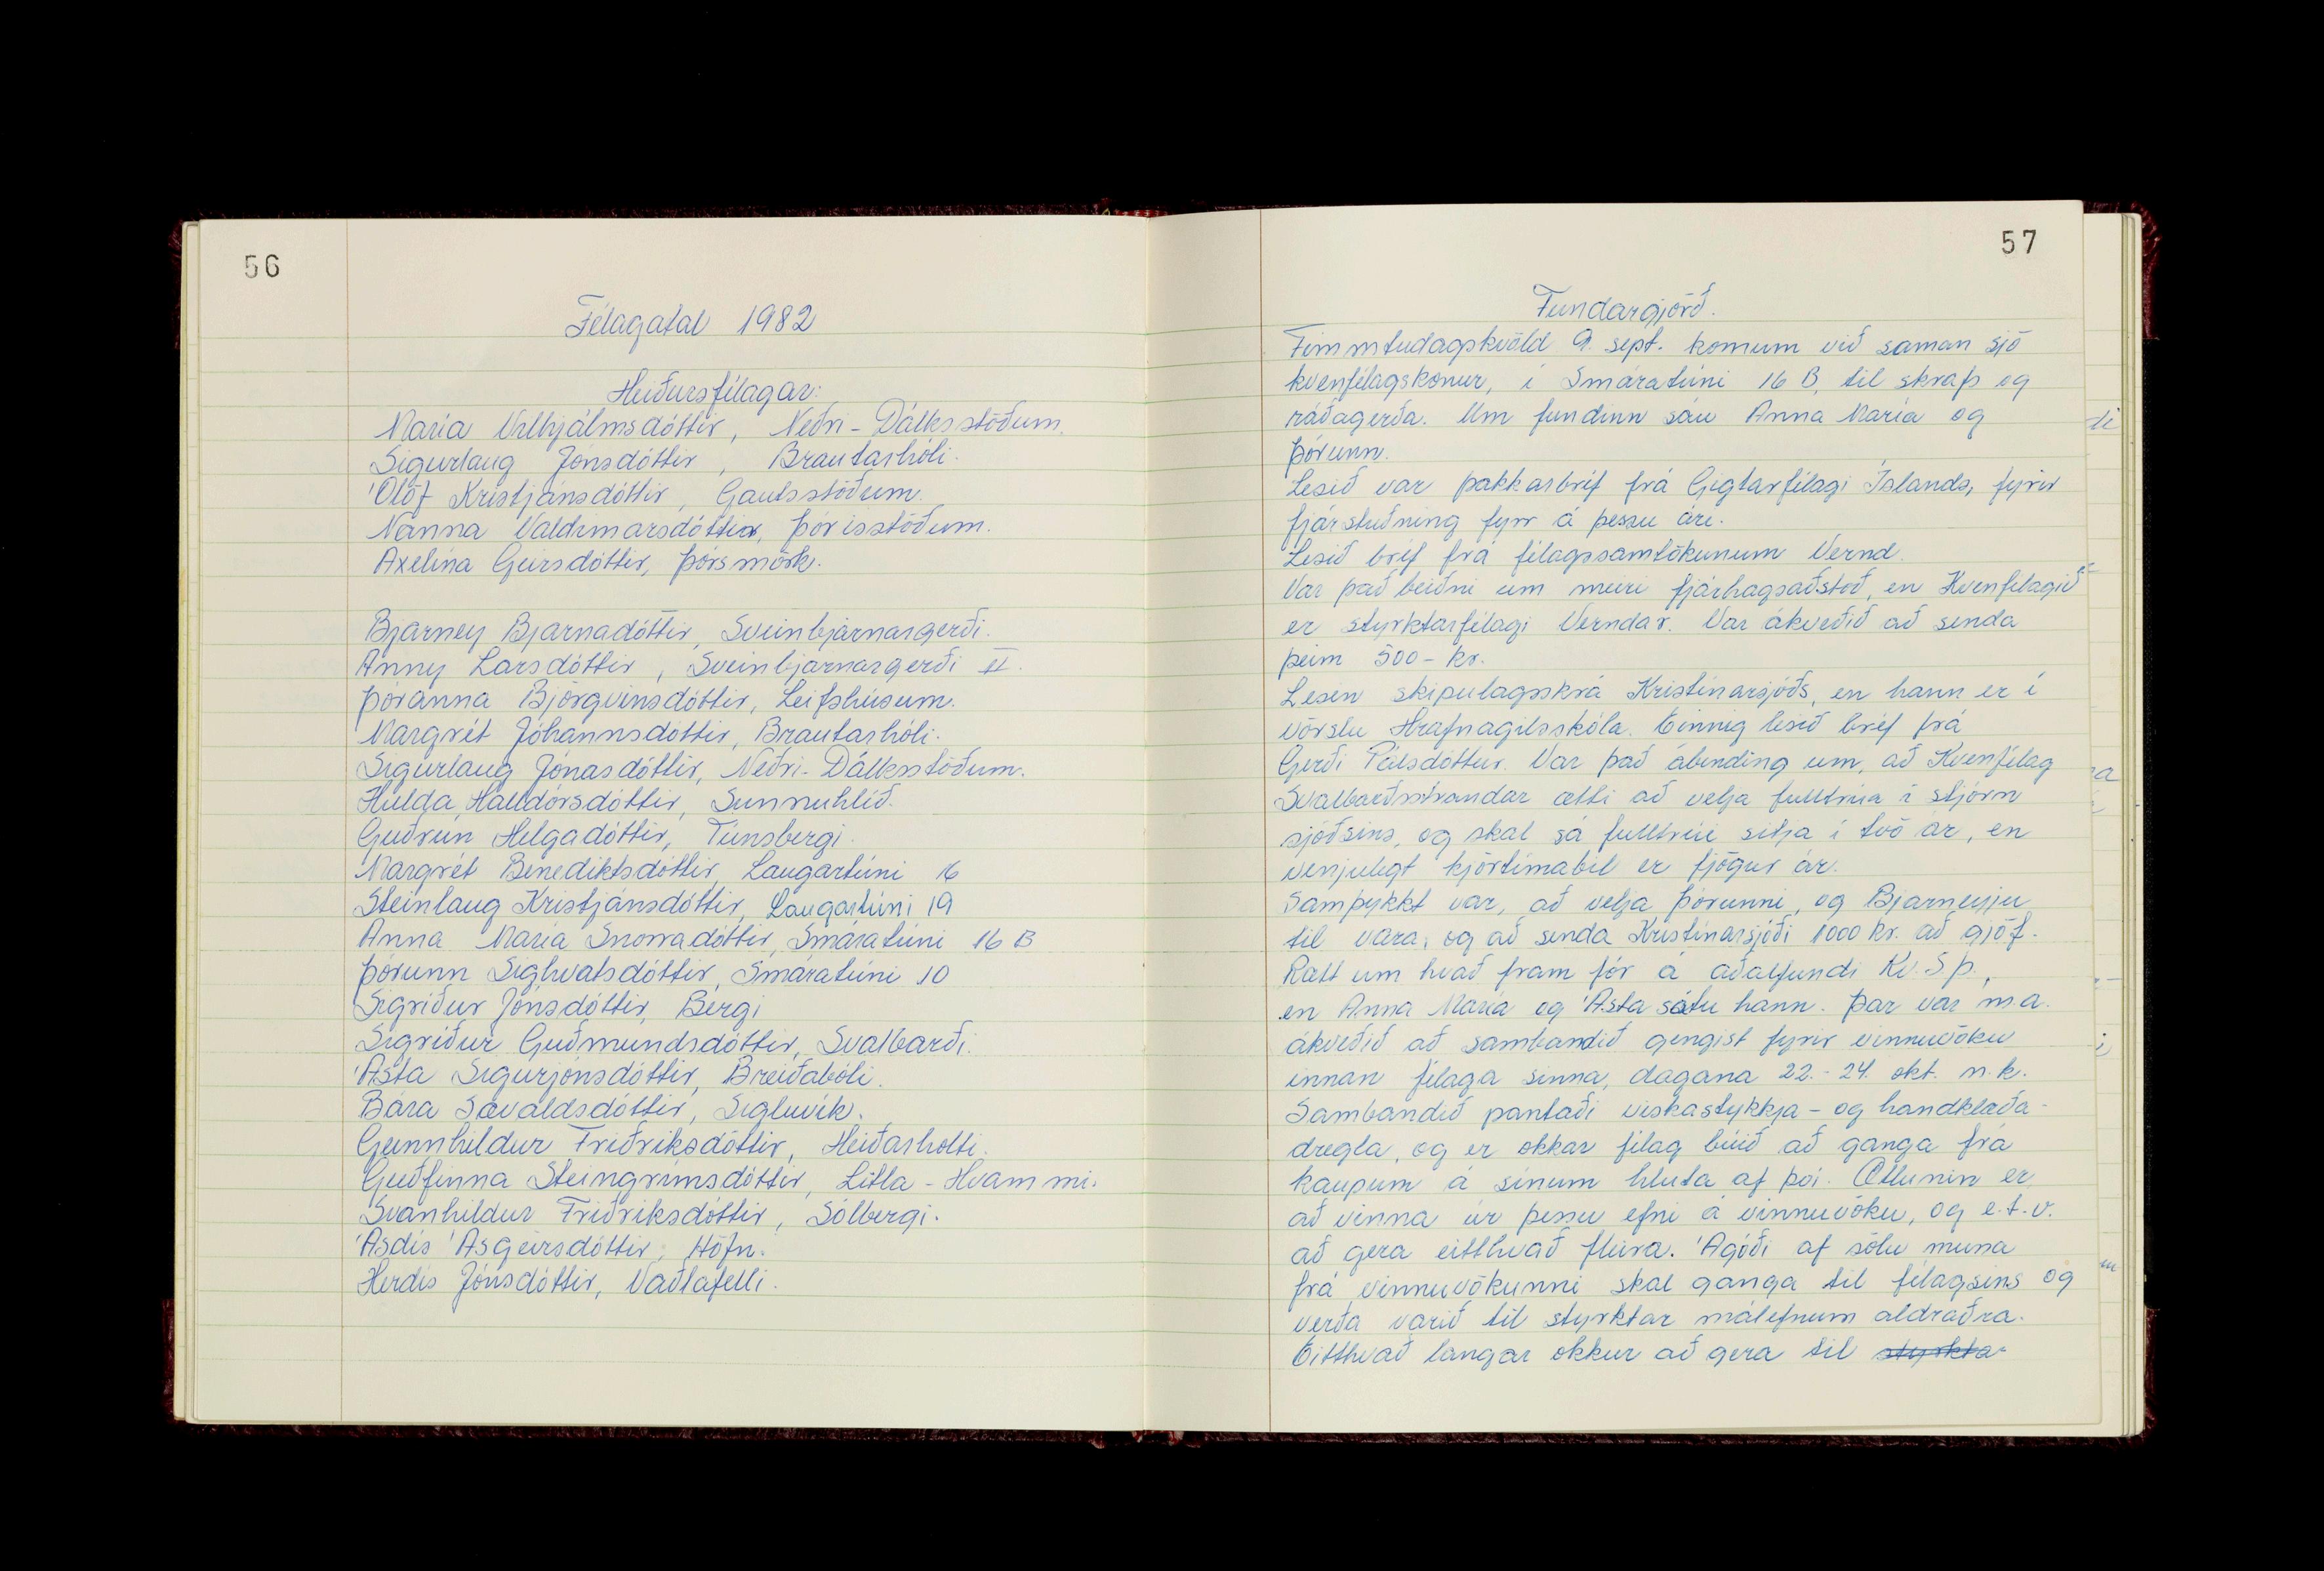 56
Félagatal 1982
Heiðursfélagar:
María Vilhjálmsdóttir, Neðri-Dálksstöðum.
Sigurlaug Jónsdóttir, Brautarhóli.
Ólöf Kristjánsdóttir, Gautsstöðum.
Nanna Valdimarsdóttir, Þórisstöðum.
Axelína Geirsdóttir, Þórsmörk.
Bjarney Bjarnadóttir, Sveinbjarnargerði.
Anny Larsdóttir, Sveinbjarnargerði II.
Þóranna Björgvinsdóttir, Leifshúsum.
Margrét Jóhannsdóttir, Brautarhóli.
Sigurlaug Jónasdóttir, Neðri-Dálksstöðum.
Hulda Halldórsdóttir, Sunnuhlíð.
Guðrún Helgadóttir, Túnsbergi.
Margrét Benediktsdóttir, Laugartúni 16
Steinlaug Kristjánsdóttir, Laugartúni 19
Anna María Snorradóttir, Smáratúni 16 B
Þórunn Sighvatsdóttir, Smáratúni 10
Sigríður Jónsdóttir, Bergi
Sigríður Guðmundsdóttir, Svalbarði.
Ásta Sigurjónsdóttir, Breiðabóli.
Bára Sævaldsdóttir, Sigluvík.
Gunnhildur Friðriksdóttir, Heiðarholti.
Guðfinna Steingrímsdóttir, Litla-Hvammi.
Svanhildur Friðriksdóttir, Sólbergi.
Ásdís Ásgeirsdóttir, Höfn.
Herdís Jónsdóttir, Vaðlafelli.
57
Fundargjörð.
Fimmtudagskvöld 9. sept. komum við saman sjö
kvenfélagskonur, í Smáratúni 16 B, til skrafs og
ráðagerða. Um fundinn sáu Anna María og
Þórunn.
Lesið var þakkarbréf frá Gigtarfélagi Íslands, fyrir
fjárstuðning fyrr á þessu ári.
Lesið bréf frá félagssamtökunum Vernd.
Var það beiðni um meiri fjárhagsaðstoð, en Kvenfélagið
er styrktarfélagi Verndar. Var ákveðið að senda
þeim 500- kr.
Lesin skipulagsskrá Kristínarsjóðs, en hann er í
vörslu Hrafnagilsskóla. Einnig lesið bréf frá
Gerði Pálsdóttur. Var það ábending um, að Kvenfélag
Svalbarðsstrandar ætti að velja fulltrúa í stjórn
sjóðsins, og skal sá fulltrúi sitja í tvö ár, en
venjulegt kjörtímabil er fjögur ár.
Samþykkt var, að velja Þórunni, og Bjarneyju
til vara, og að senda Kristínarsjóði 1000 kr. að gjöf.
Rætt um hvað fram fór á aðalfundi Kv. S.þ.,
en Anna María og Ásta sátu hann. Þar var m.a.
ákveðið að sambandið gengist fyrir vinnuvöku
innan félaga sinna, dagana 22.-24. okt. n.k.
Sambandið pantaði viskastykkja- og handklæða-
dregla, og er okkar félag búið að ganga frá
kaupum á sínum hluta af því. Ætlunin er
að vinna úr þessu efni á vinnuvöku, og e.t.v.
að gera eitthvað fleira. Ágóði af sölu muna
frá vinnuvökunni skal ganga til félagsins og
verða varið til styrktar málefnum aldraðra.
Eitthvað langar okkur að gera til styrkta